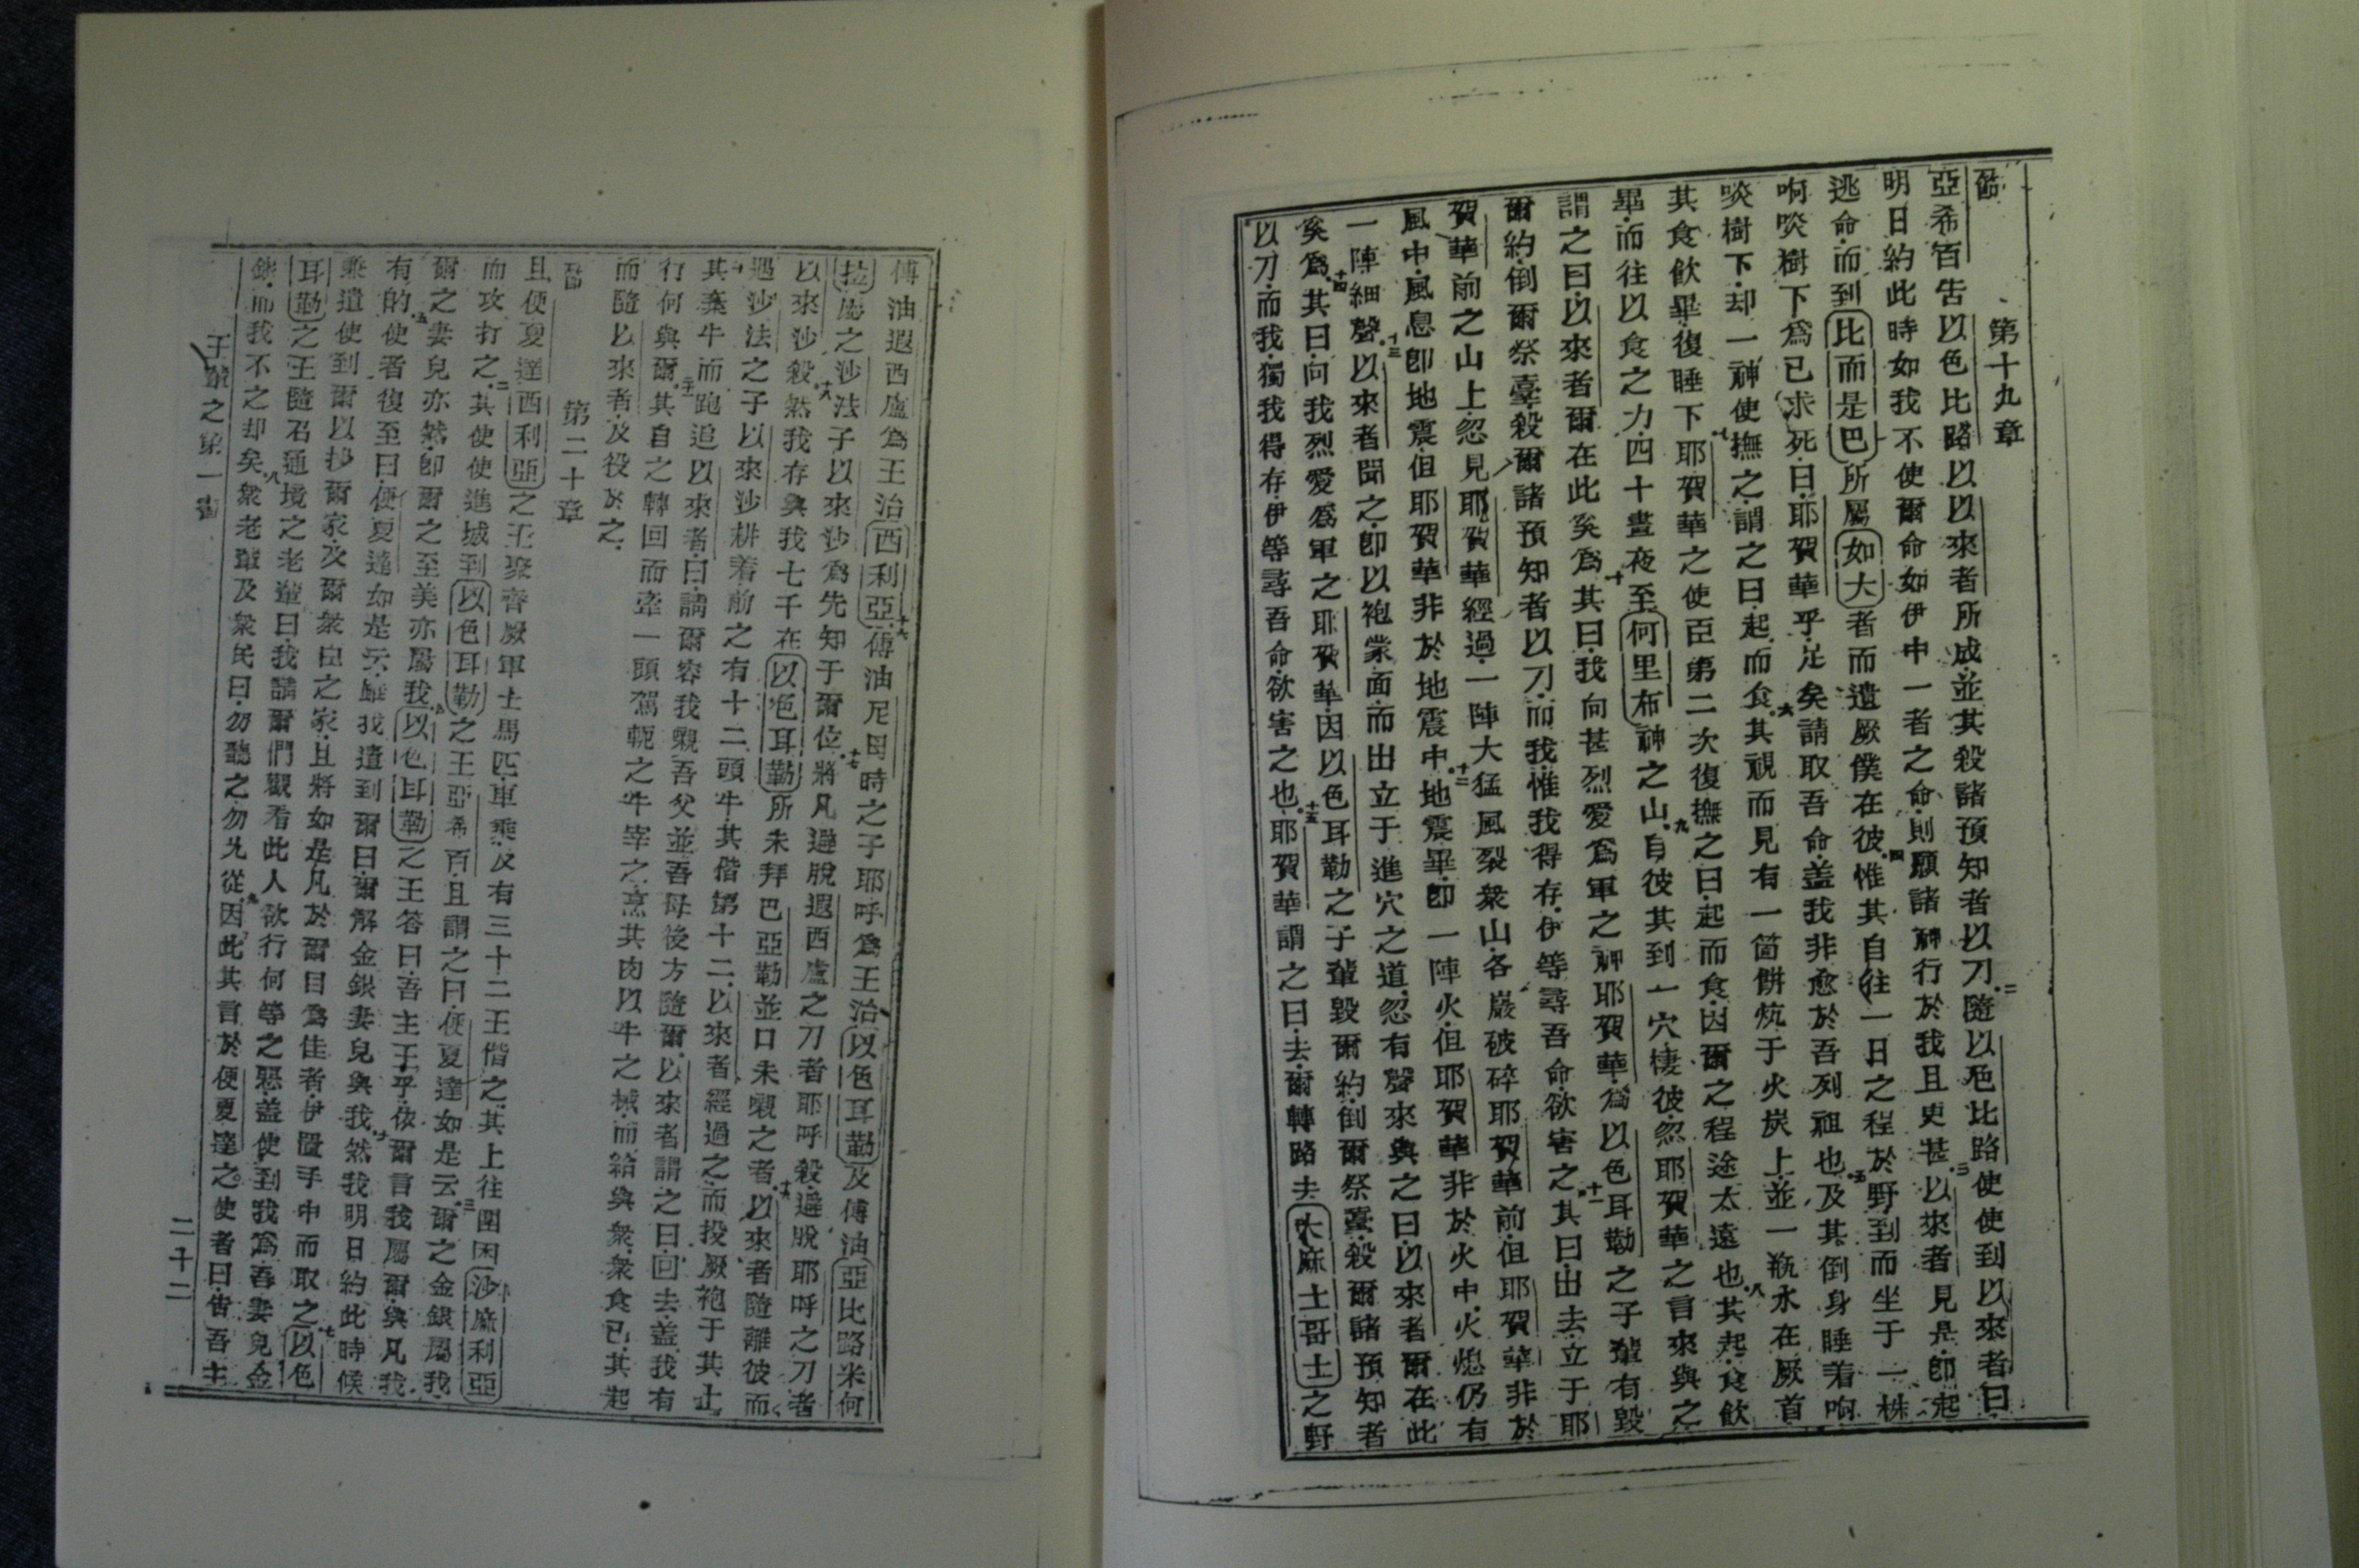 第十九章
亞希百告以色比路以以來者所成並其殺諸預知者以刀二隨以色比路使使到以來者曰
明日約此時如我不使爾命如伊中一者之命則願諸神行於我且更甚三以來者見是卽起
逃命而到比而是巴所屬如大者而遺厥僕在彼四惟其自往一日之程於野到而坐于一株
啊啖樹下爲已求死曰耶賀華乎足矣請取吾命盖我非愈於吾列祖也五及其倒身睡着啊
啖樹下却一神使撫之謂之曰起而食六其視而見有一箇餅炕于火炭上並一瓶水在厥首
其食飲畢復睡下七耶賀華之使臣第二次復撫之曰起而食因爾之程途太遠也八其起食飲
畢而往以食之力四十晝夜至何里布神之山九自彼其到一穴棲彼忽耶賀華之言來與之
謂之曰以來者爾在此矣爲十其曰我向甚烈愛爲軍之神耶賀華爲以色耳勒之子輩有毀
爾約倒爾祭臺殺爾諸預知者以刀而我惟我得存伊等尋吾命欲害之十一其曰出去立于耶
賀華前之山上忽見耶賀華經過一陣大猛風裂衆山各巖破碎耶賀華前但耶賀華非於
風中風息卽地震但耶賀華非於地震中十二地震畢卽一陣火但耶賀華非於火中火熄仍有
一陣細聲十三以來者聞之卽以袍蒙面而出立于進穴之道忽有聲來與之曰以來者爾在此
矣爲十四其曰向我烈愛爲軍之耶賀華因以色耳勒之子輩毀爾約倒爾祭臺殺爾諸預知者
以刀而我獨我得存伊等尋吾命欲害之也十五耶賀華謂之曰去爾轉路去大麻士哥士之野
傅油遐西盧爲王治西利亞十六傅油尼母時之子耶呼爲王治以色耳勒及傅油亞比路米何
拉屬之沙法子以來沙爲先知于爾位十七將凡遁脫遐西盧之刀者耶呼殺遁脫耶呼之刀者
以來沙殺十八然我存與我七千在以色耳勒所未拜巴亞勒並口未親之者十九以來者隨離彼而
遇沙法之子以來沙耕着前之有十二頭牛其偕第十二以來者經過之而投厥袍于其上
二十其棄牛而跑追以來者曰請爾容我親吾父並吾母後方隨爾以來者謂之曰回去盖我有
行何與爾二十一其自之轉回而牽一頭駕軛之牛宰之烹其肉以牛之械而給與衆衆食已其起
而隨以來者及役於之
第二十章
且便夏達西利亞之王聚齊厥軍士馬匹車乘及有三十二王偕之其上往圍困沙麻利亞
而攻打之二其使使進城到以色耳勒之王亞希百且謂之曰便夏達如是云三爾之金銀屬我
爾之妻兒亦然卽爾之至美亦屬我四以色耳勒之王答曰吾主王乎依爾言我屬爾與凡我
有的五使者復至曰便夏達如是云雖我遣到爾曰爾解金銀妻兒與我六然我明日約此時候
兼遣使到爾以抄爾家及爾衆臣之家且將如是凡於爾目爲佳者伊置手中而取之七以色
耳勒之王隨召通境之老輩曰我請爾們觀看此人欲行何等之惡盖使到我爲吾妻兒金
銀而我不之却矣八衆老輩及衆民曰勿聽之勿允從九因此其言於便夏達之使者曰告吾主
王輩之第一書
二十二